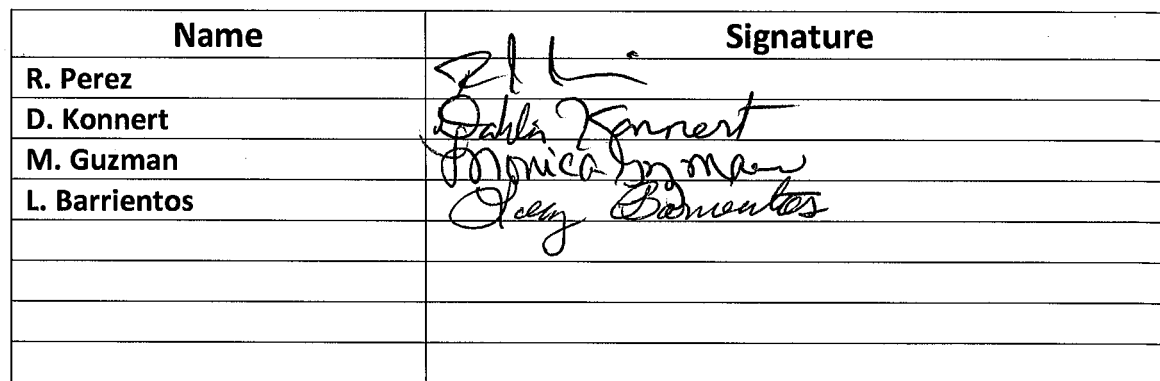 Name Signature
R. Perez
D. Konnert Dahlia Konnert
M. Guzman Monica Guzman
L. Barrientos Barrientos